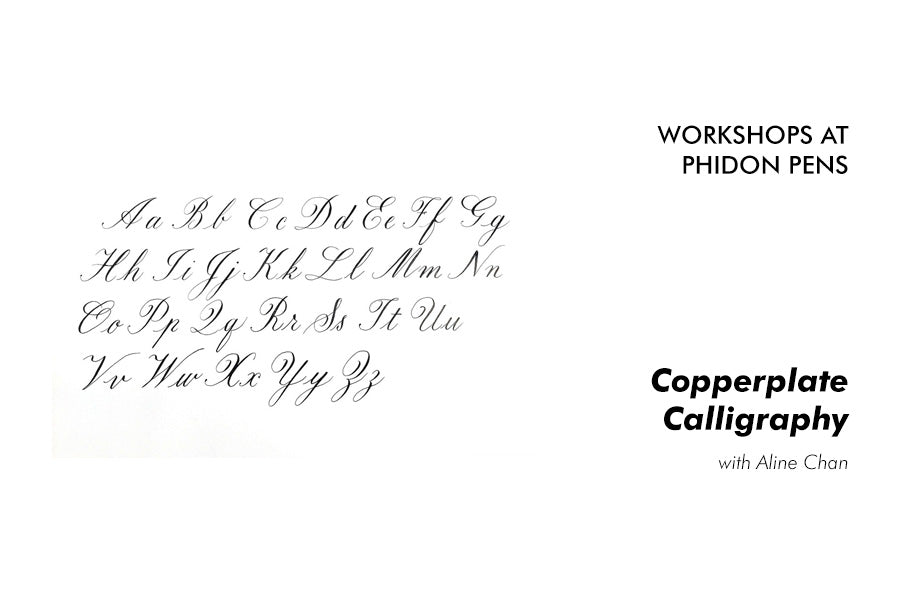 Aa Bb Cc Dd Ee Ff Gg
Hh Ii Jj Kk Ll Mm Nn
Oo Pp Qq Rr Ss Tt Uu
Vv Ww Xx Yy Zz
WORKSHOPS AT
PHIDON PENS
Copperplate
Calligraphy
with Aline Chan